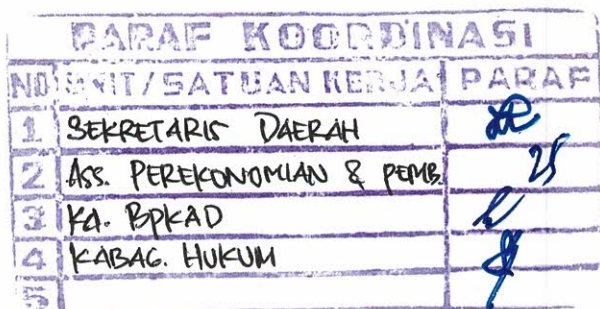 PARAF KOORDINASI
NO UNIT/SATUAN KERJA PARAF
1 SEKRETARIS DAERAH
2 ASS. PEREKONOMIAN & PEMB
3 Ka. BPKAD
4 KABAG. HUKUM
5